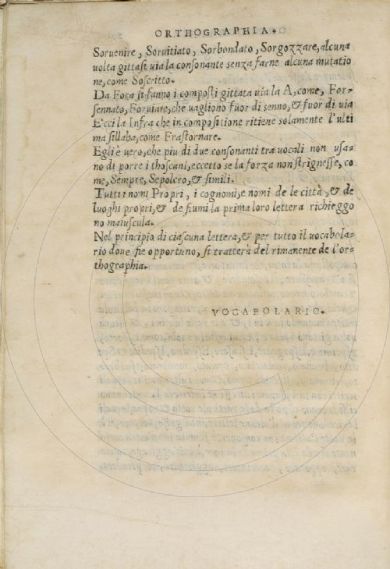 ORTHOGRAPHIA.
Soruenire, Soruitiato, Sorbondato, Sorgozzare, alcuna
uolta gittasi uia la consonante senza farne alcuna mutatio
ne, come Soscritto.
Da Fora si fanno i composti gittata uia la A, come, For-
sennato, Foruiare, che uagliono fuor di senno, & fuor di uia
Ecci la Infra che in compositione ritiene solamente l'ulti
ma sillaba, come Frastornare.
Egli è uero, che piu di due consonanti tra uocali non usa-
no di porre i thoscani, eccetto se la forza non strignesse, co
me, Sempre, Sepolcro, & simili.
Tutti nomi Propri, i cognomi, e nomi de le città, & de
luoghi propri, & de fiumi la prima loro lettera richieggo
no maiuscula.
Nel principio di ciascuna lettera, & per tutto il uocabola-
rio doue fie opportuno, si tratterà del rimanente de l'or-
thographia.
VOCABOLARIO.